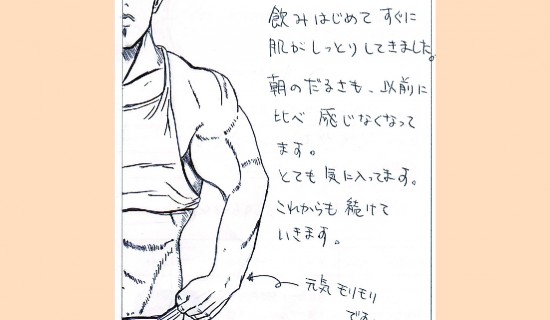 飲みはじめて すぐに
肌がしっとりしてきました。
朝のだるさも、以前に
比べ 感じなくなって
ます。
とても 気に入ってます。
これからも 続けて
いきます。
元気 モリモリ
です